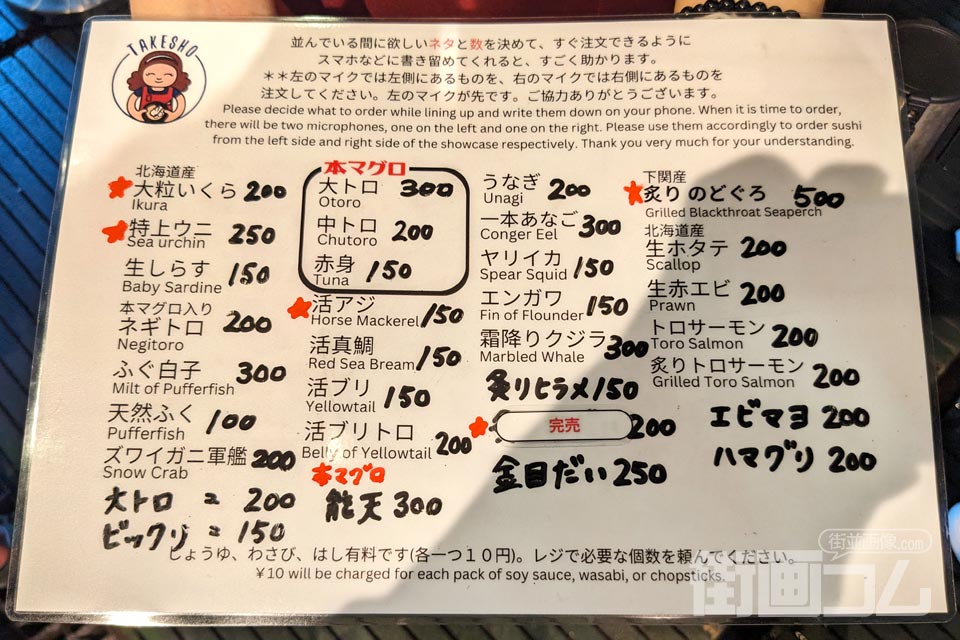 TAKESHO
並んでいる間に欲しいネタと数を決めて、すぐ注文できるように
スマホなどに書き留めてくれると、すごく助かります。
＊＊左のマイクでは左側にあるものを、右のマイクでは右側にあるものを
注文してください。左のマイクが先です。ご協力ありがとうございます。
Please decide what to order while lining up and write them down on your phone. When it is time to order,
there will be two microphones, one on the left and one on the right. Please use them accordingly to order sushi
from the left side and right side of the showcase respectively. Thank you very much for your understanding.
北海道産
大粒いくら 200
Ikura
特上ウニ 250
Sea urchin
生しらす 150
Baby Sardine
本マグロ入り
ネギトロ 200
Negitoro
ふぐ白子 300
Milt of Pufferfish
天然ふく 100
Pufferfish
ズワイガニ軍艦 200
Snow Crab
大トロ = 200
ビックリ = 150
本マグロ
大トロ 300
Otoro
中トロ 200
Chutoro
赤身 150
Tuna
活アジ 150
Horse Mackerel
活真鯛 150
Red Sea Bream
活ブリ 150
Yellowtail
活ブリトロ 200
Belly of Yellowtail
本マグロ
能天 300
うなぎ 200
Unagi
一本あなご 300
Conger Eel
ヤリイカ 150
Spear Squid
エンガワ 150
Fin of Flounder
霜降りクジラ 300
Marbled Whale
炙りヒラメ 150
完売 200
金目だい 250
下関産
炙りのどぐろ 500
Grilled Blackthroat Seaperch
北海道産
生ホタテ 200
Scallop
生赤エビ 200
Prawn
トロサーモン 200
Toro Salmon
炙りトロサーモン 200
Grilled Toro Salmon
エビマヨ 200
ハマグリ 200
しょうゆ、わさび、はし有料です(各一つ１０円)。レジで必要な個数を頼んでください。
¥10 will be charged for each pack of soy sauce, wasabi, or chopsticks.
街並画像.com
街画コム